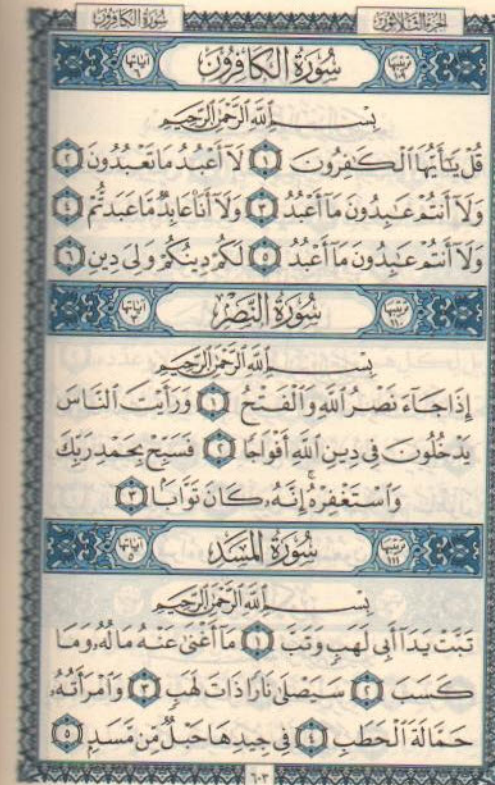 سُورَةُ الكَافِرُونَ الجُزْءُ الثَّلَاثُونَ
ترتيبها ١٠٩ سُورَةُ الكَافِرُونَ آياتها ٦
بِسْمِ ٱللَّهِ ٱلرَّحْمَٰنِ ٱلرَّحِيمِ
قُلْ يَٰٓأَيُّهَا ٱلْكَٰفِرُونَ ١ لَآ أَعْبُدُ مَا تَعْبُدُونَ ٢
وَلَآ أَنتُمْ عَٰبِدُونَ مَآ أَعْبُدُ ٣ وَلَآ أَنَا۠ عَابِدٌ مَّا عَبَدتُّمْ ٤
وَلَآ أَنتُمْ عَٰبِدُونَ مَآ أَعْبُدُ ٥ لَكُمْ دِينُكُمْ وَلِىَ دِينِ ٦
ترتيبها ١١٠ سُورَةُ النَّصْرِ آياتها ٣
بِسْمِ ٱللَّهِ ٱلرَّحْمَٰنِ ٱلرَّحِيمِ
إِذَا جَآءَ نَصْرُ ٱللَّهِ وَٱلْفَتْحُ ١ وَرَأَيْتَ ٱلنَّاسَ
يَدْخُلُونَ فِى دِينِ ٱللَّهِ أَفْوَاجًا ٢ فَسَبِّحْ بِحَمْدِ رَبِّكَ
وَٱسْتَغْفِرْهُ ۚ إِنَّهُۥ كَانَ تَوَّابًۢا ٣
ترتيبها ١١١ سُورَةُ المَسَدِ آياتها ٥
بِسْمِ ٱللَّهِ ٱلرَّحْمَٰنِ ٱلرَّحِيمِ
تَبَّتْ يَدَآ أَبِى لَهَبٍ وَتَبَّ ١ مَآ أَغْنَىٰ عَنْهُ مَالُهُۥ وَمَا
كَسَبَ ٢ سَيَصْلَىٰ نَارًا ذَاتَ لَهَبٍ ٣ وَٱمْرَأَتُهُۥ
حَمَّالَةَ ٱلْحَطَبِ ٤ فِى جِيدِهَا حَبْلٌ مِّن مَّسَدٍۭ ٥
٦٠٣